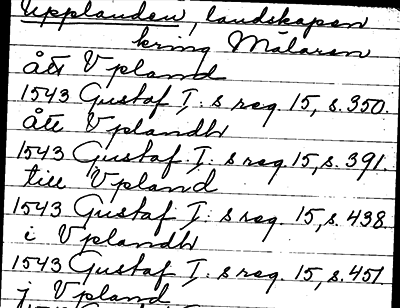 Upplanden, landskapen
kring Mälaren
ått Vpland
1543 Gustaf I:s reg. 15, s. 350.
ått Vplandh
1543 Gustaf I:s reg. 15, s. 391.
till Vpland
1543 Gustaf I:s reg. 15, s. 438
i Vplandh
1543 Gustaf I:s reg. 15, s. 451.
j Vpland